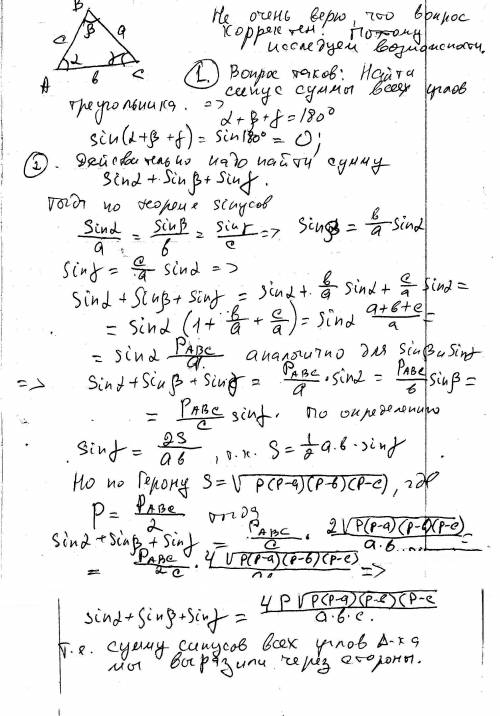 B
β
c a
α γ
A b C
Не очень верю, что вопрос
корректен. Потому
исследуем возможности.
1. Вопрос таков: Найти
синус суммы всех углов
треугольника. =>
α+β+γ=180°
sin(α+β+γ)=sin180°=0;
2. Действительно надо найти сумму
sinα+sinβ+sinγ.
Тогда по теореме sinусов
sinα/a = sinβ/b = sinγ/c => sinβ = b/a sinα
sinγ = c/a sinα =>
sinα+sinβ+sinγ = sinα + b/a sinα + c/a sinα =
= sinα (1 + b/a + c/a) = sinα a+b+c/a =
= sinα P_ABC/a аналогично для sinβ и sinγ
=> sinα+sinβ+sinγ = P_ABC/a · sinα = P_ABC/b sinβ =
= P_ABC/c sinγ. По определению
sinγ = 2S/ab, т.к. S = 1/2 a·b·sinγ
Но по Герону S = √p(p-a)(p-b)(p-c), где
P = P_ABC/2 тогда
sinα+sinβ+sinγ = P_ABC/c · 2√p(p-a)(p-b)(p-c)/a·b =
= P_ABC/2c · 4√p(p-a)(p-b)(p-c) =>
sinα+sinβ+sinγ = 4p√p(p-a)(p-b)(p-c/a·b·c.
Т.е. сумму синусов всех углов Δ-ка
мы выразили через стороны.